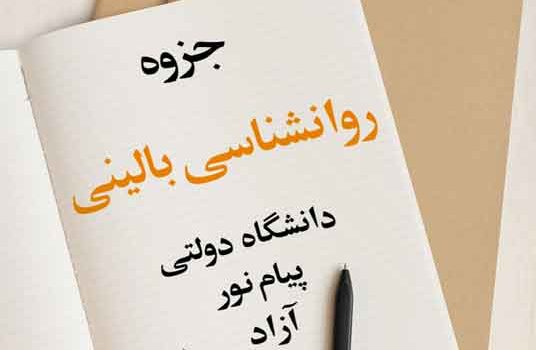 جزوه
روانشناسی بالینی
دانشگاه دولتی
پیام نور
آزاد